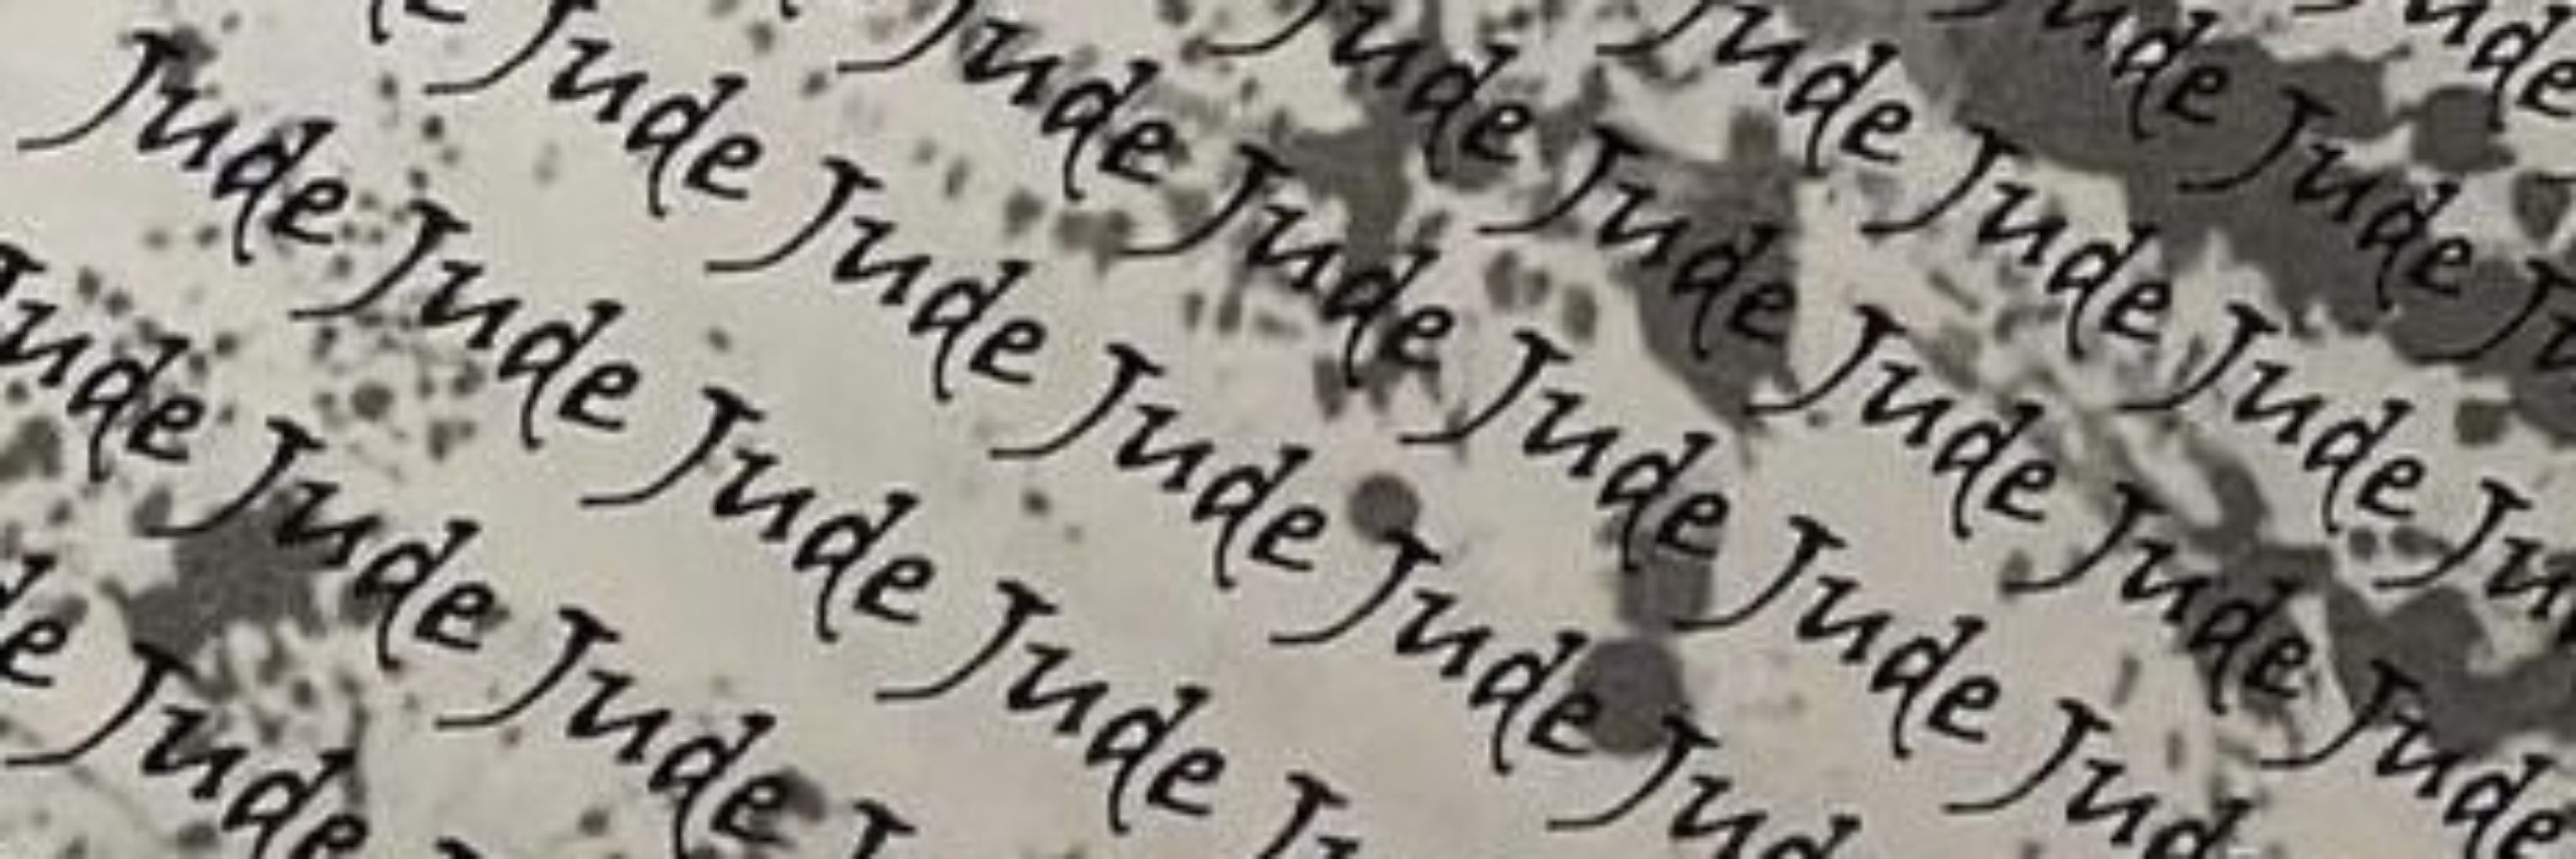 Jude
Jude Jude
Jude Jude Jude
Jude Jude Jude Jude Jude
Jude Jude Jude Jude
Jude Jude Jude Jude
Jude Jude Jude Jude
Jude Jude Jude
Jude